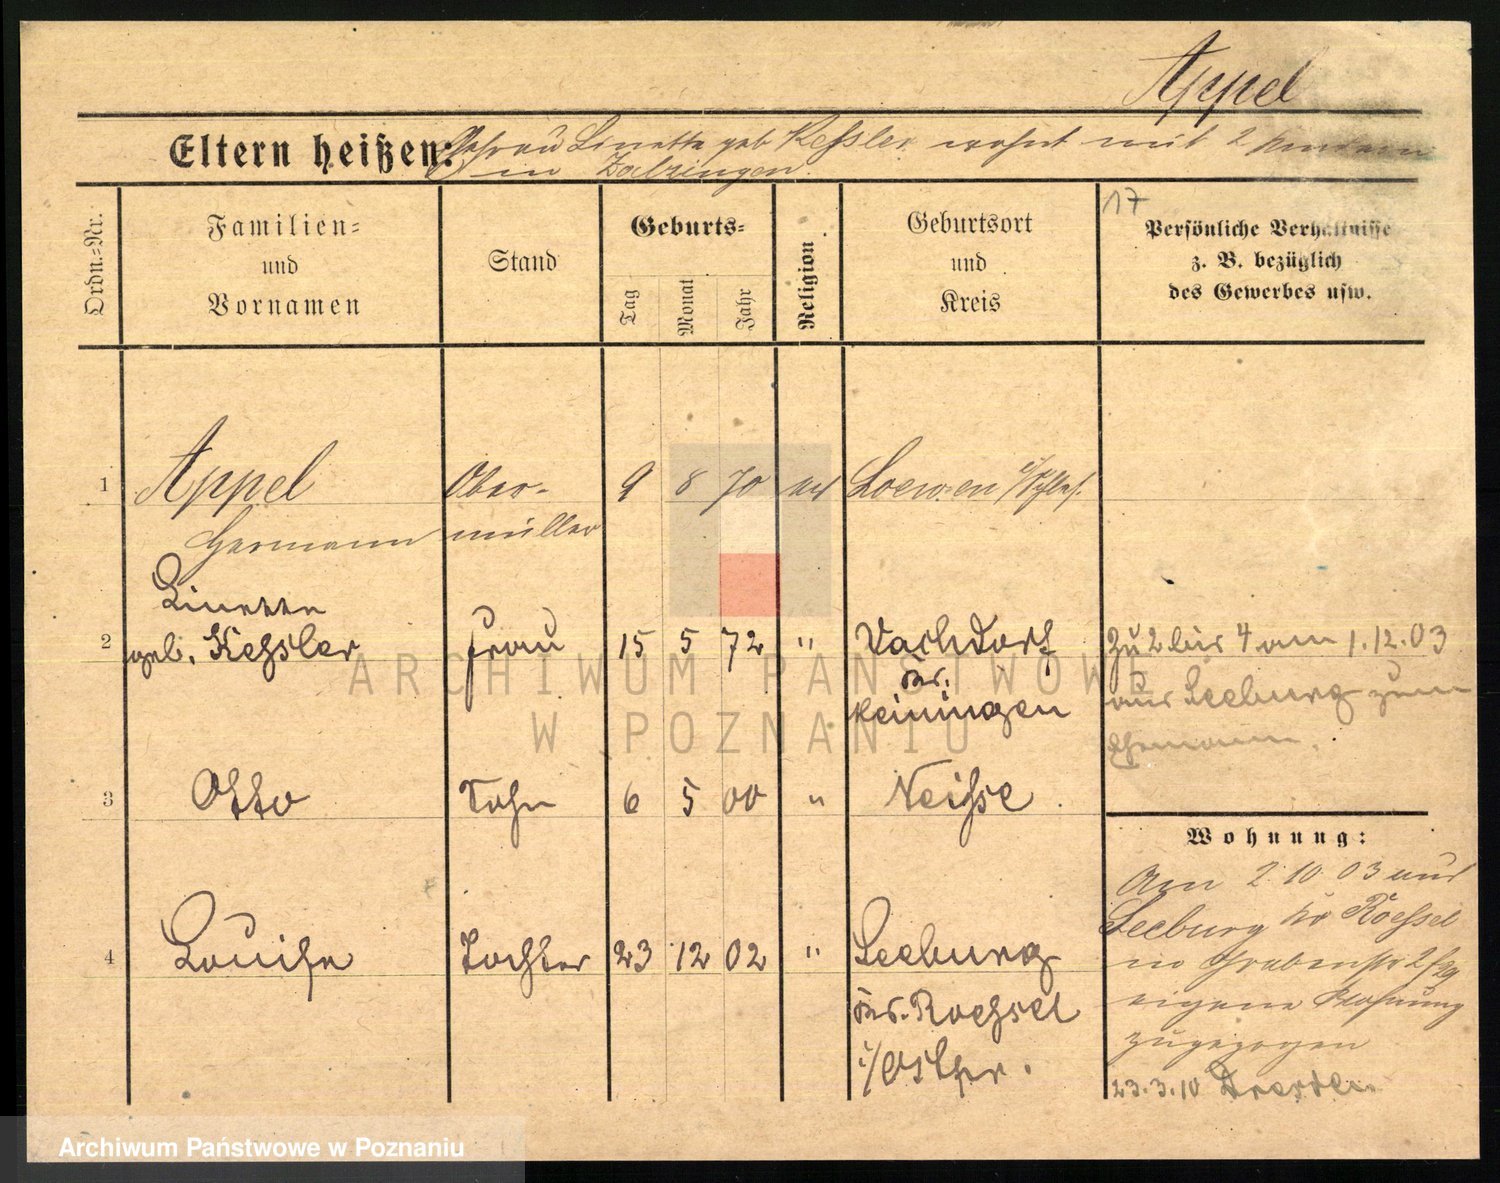 Appel
Eltern heißen: Ehefrau Linette geb Kessler wohnt mit 2 Kindern
in
17
Ordn.-Nr.
Familien-
und
Vornamen
Stand
Geburts-
Tag
Monat
Jahr
Religion
Geburtsort
und
Kreis
Persönliche Verhältnisse
z. B. bezüglich
des Gewerbes usw.
1 Appel Ober- 9 8 70 Loewen i/Schles.
Hermann müller
Linette
2 geb. Kessler Frau 15 5 72 " Vachdorf Zu 2 bis 4 am 1.12.03
Kr. aus Seeburg zum
Meiningen Ehemann.
3 Otto Sohn 6 5 00 " Neisse
Wohnung:
Am 2 10 03 aus
Seeburg Kr Roessel
in Grabenstr
eigene Wohnung
zugezogen
23.3.10 Dresden
4 Louise Tochter 23 12 02 " Seeburg
Kr. Roessel
i/Ostpr.
ARCHIWUM PAŃSTWOWE
W POZNANIU
Archiwum Państwowe w Poznaniu